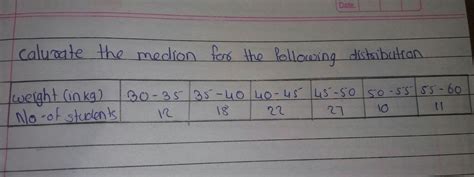 Date.
Calurate the medion for the following distribution
weight (in kg) 30-35 35-40 40-45 45-50 50-55 55-60
No-of students 12 18 22 27 10 11